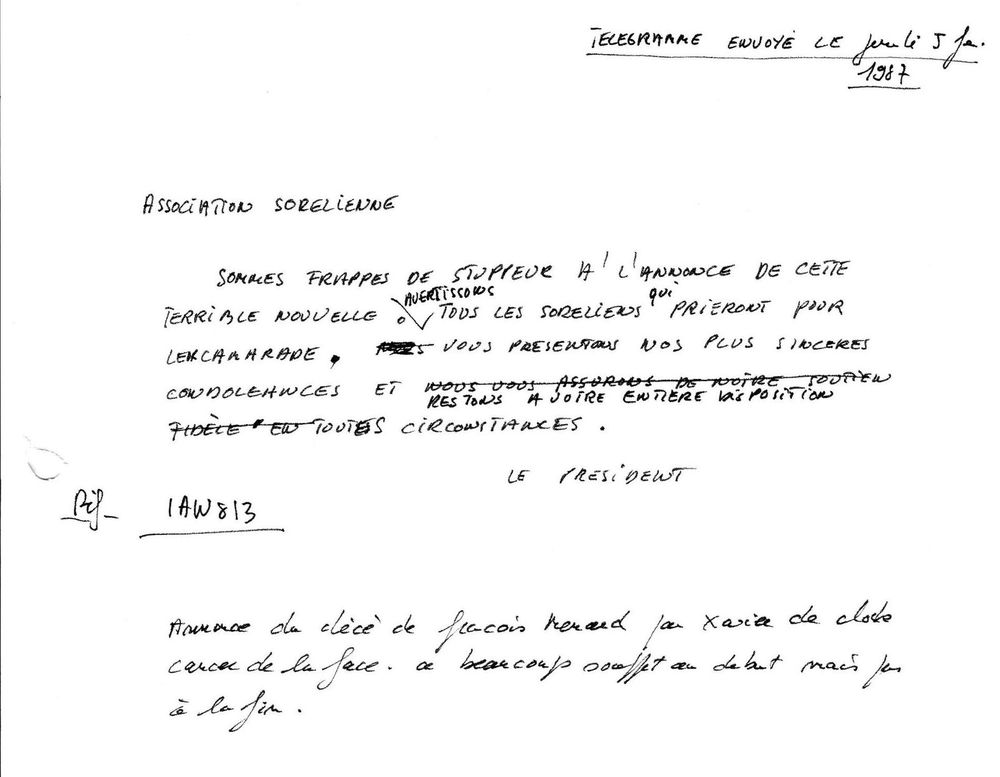 TELEGRAMME ENVOYÉ LE jeudi 5 fev.
1987
ASSOCIATION SORELIENNE
SOMMES FRAPPES DE STUPEUR A L'ANNONCE DE CETTE
TERRIBLE NOUVELLE. AVERTISSONS TOUS LES SORELIENS qui PRIERONT POUR
LEUR CAMARADE. VOUS PRESENTONS NOS PLUS SINCERES
CONDOLEANCES ET NOUS VOUS ASSURONS DE NOTRE SOUTIEN
RESTONS A VOTRE ENTIÈRE DISPOSITION
FIDÈLE EN TOUTES CIRCONSTANCES.
LE PRESIDENT
Réf_ IAW813
Annonce du décé de Francois Menard par Xavier de
cancer de la face. a beaucoup souffet au debut mais pas
à la fin.